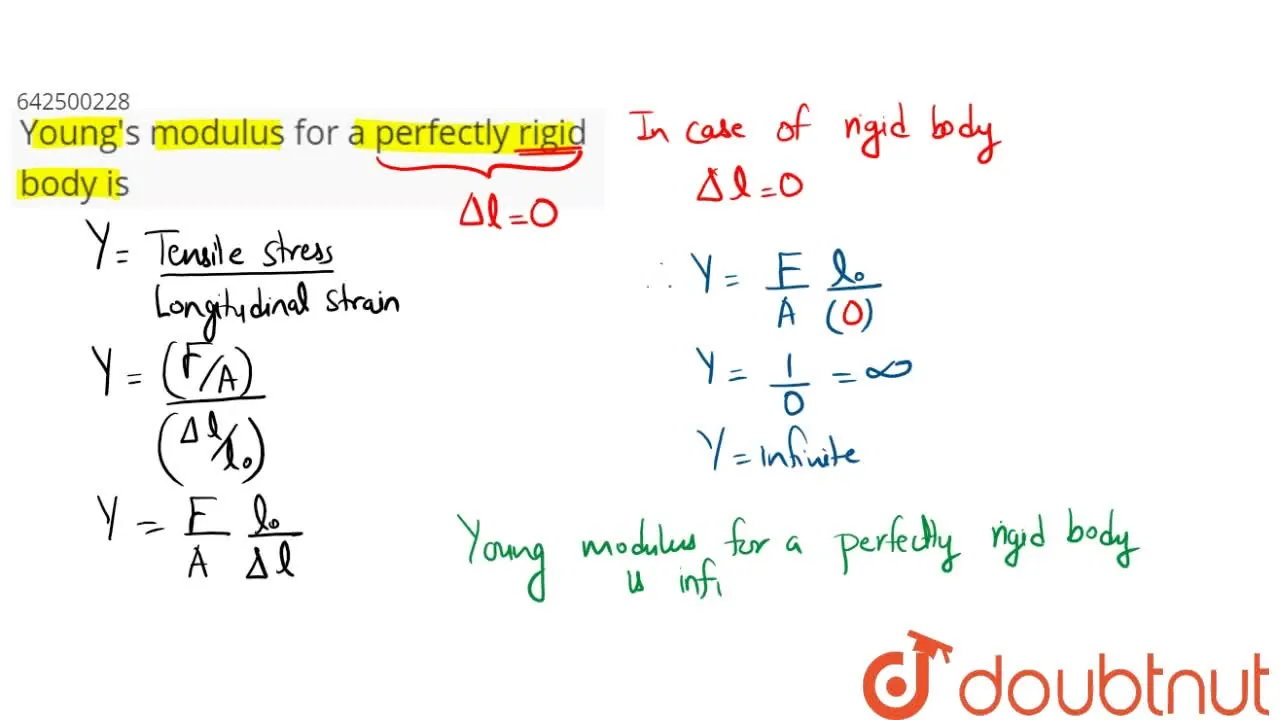 642500228
Young's modulus for a perfectly rigid
body is
Δl = 0
Y = Tensile stress
Longitudinal strain
Y = (F/A)
(Δl/l₀)
Y = F l₀
A Δl
In case of rigid body
Δl = 0
∴ Y = F l₀
A (0)
Y = 1 = ∞
0
Y = infinite
Young modulus for a perfectly rigid body
is infi
doubtnut